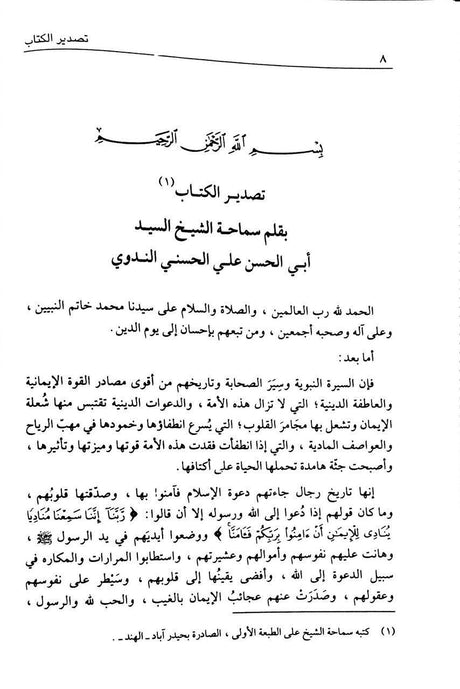 تصدير الكتاب
٨
بِسْمِ اللَّهِ الرَّحْمَٰنِ الرَّحِيمِ
تصدير الكتاب (١)
بقلم سماحة الشيخ السيد
أبي الحسن علي الحسني الندوي
الحمد لله رب العالمين ، والصلاة والسلام على سيدنا محمد خاتم النبيين ،
وعلى آله وصحبه أجمعين ، ومن تبعهم بإحسان إلى يوم الدين.
أما بعد:
فإن السيرة النبوية وسِيَرَ الصحابة وتاريخهم من أقوى مصادر القوة الإيمانية
والعاطفة الدينية؛ التي لا تزال هذه الأمة ، والدعوات الدينية تقتبس منها شُعلة
الإيمان وتشعل بها مجَامرَ القلوب؛ التي يُسرع انطفاؤها وخمودها في مهبّ الرياح
والعواصف المادية ، والتي إذا انطفأت فقدت هذه الأمة قوتها وميزتها وتأثيرها ،
وأصبحت جثّة هامدة تحملها الحياة على أكتافها.
إنها تاريخ رجال جاءتهم دعوة الإسلام فآمنو! بها ، وصدّقتها قلوبُهم ،
وما كان قولهم إذا دُعوا إلى الله ورسوله إلا أن قالوا: ﴿ رَّبَّنَآ إِنَّنَا سَمِعْنَا مُنَادِيًا
يُنَادِى لِلْإِيمَٰنِ أَنْ ءَامِنُواْ بِرَبِّكُمْ فَـَٔامَنَّا ﴾ ووضعوا أيديَهم في يد الرسول ﷺ ،
وهانت عليهم نفوسهم وأموالهم وعشيرتهم ، واستطابوا المرارات والمكاره في
سبيل الدعوة إلى الله ، وأفضى يقينُها إلى قلوبهم ، وسَيْطر على نفوسهم
وعقولهم ، وصَدَرَتْ عنهم عجائبُ الإيمان بالغيب ، والحب لله والرسول ،
(١) كتبه سماحة الشيخ على الطبعة الأولى ، الصادرة بحيدر آباد ـ الهند ـ.